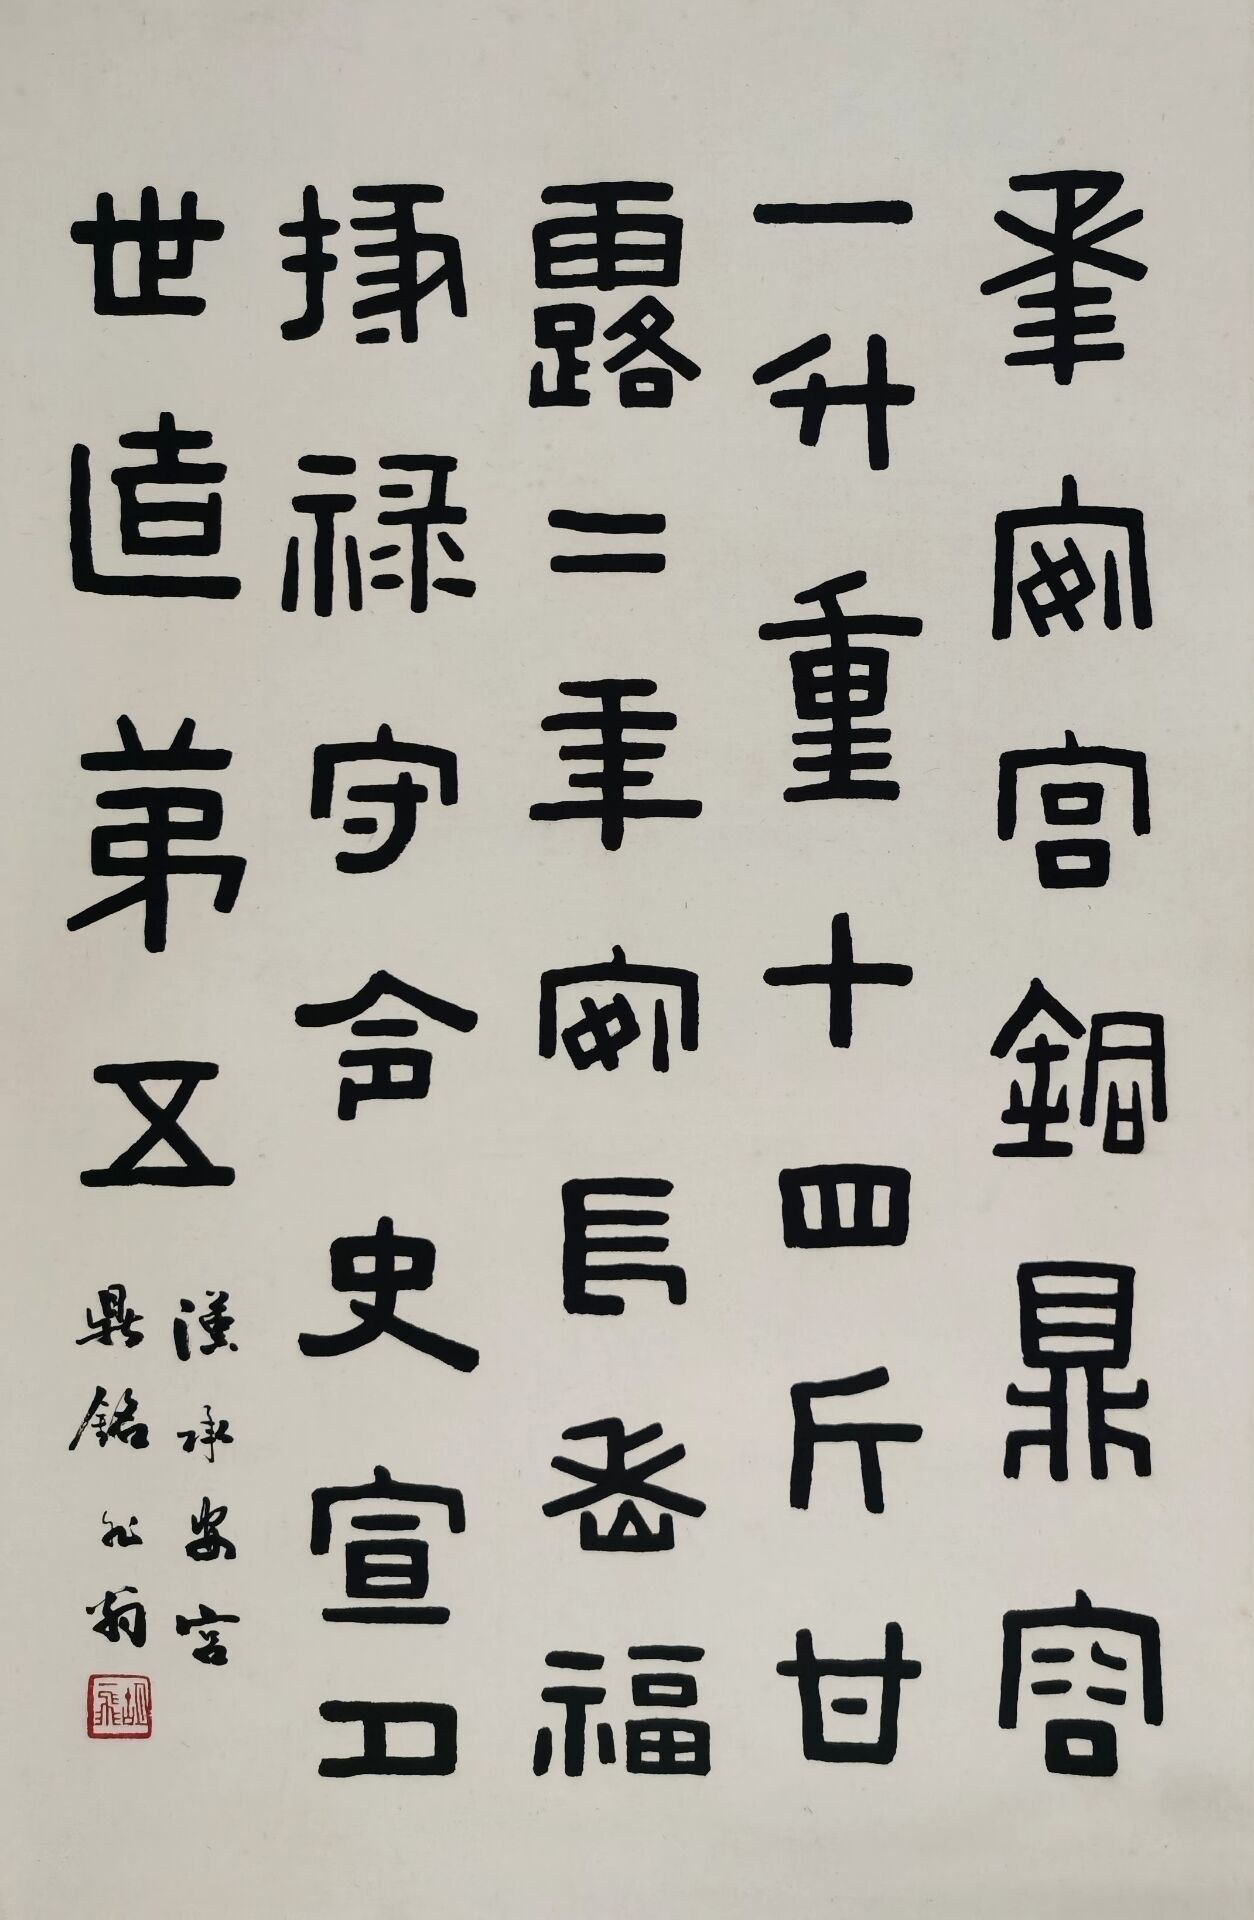 承安宮銅鼎容
一升重十四斤甘
露二年安長丞福
掾祿守令史宣工
世造弟五
漢承安宮
鼎銘 翁